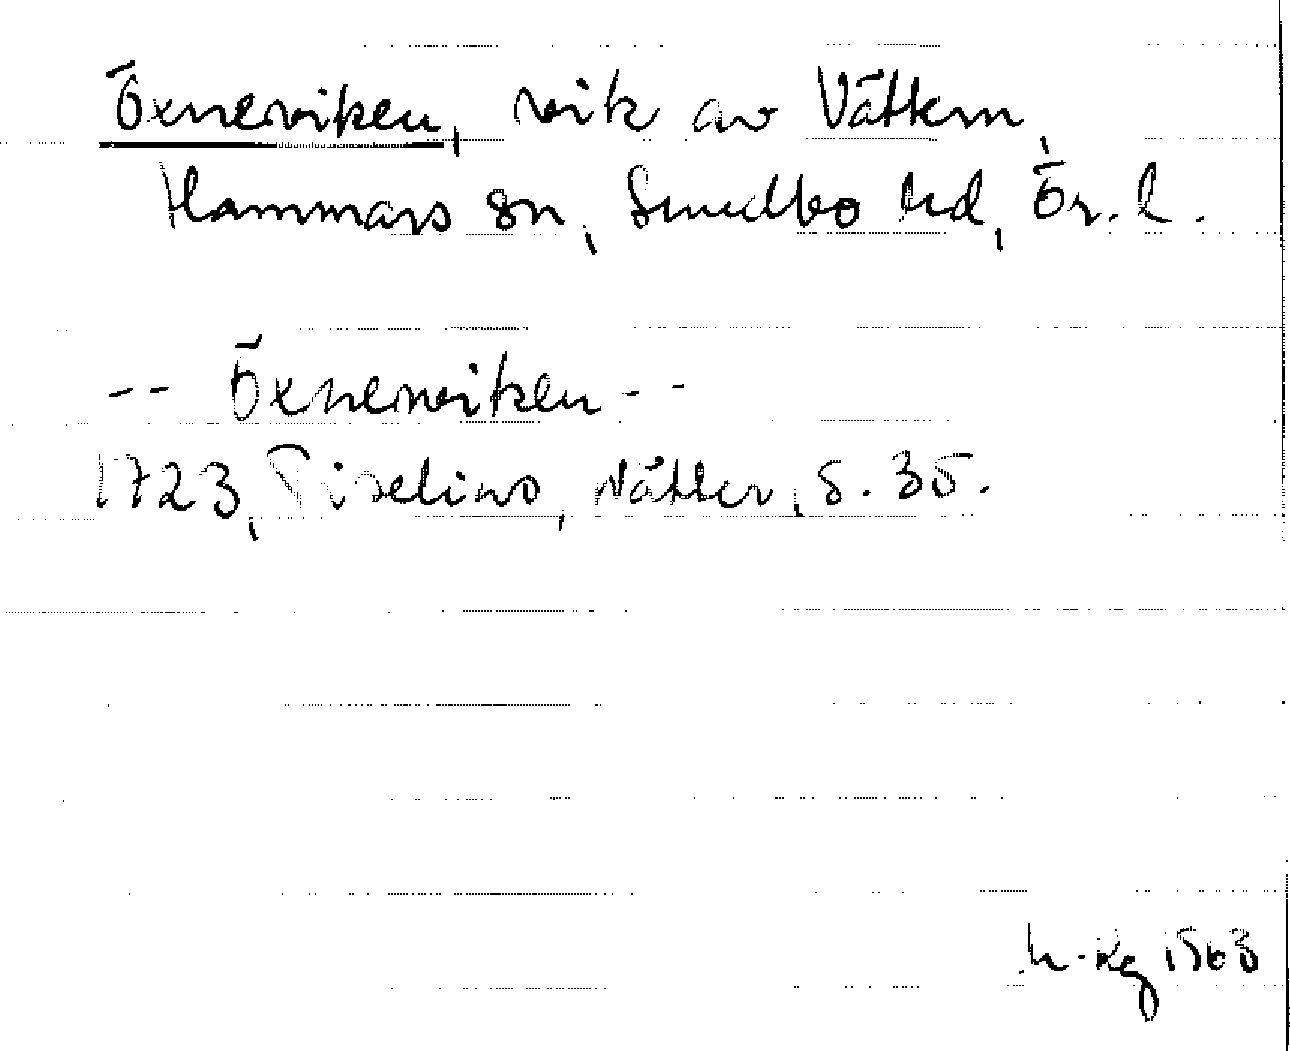 Öxneviken, vik av Vättern,
Hammars sn, Sundbo hd, Ör. l.
-- Öxneviken --
1723, Tiselius, Vätter, s. 35.
1963